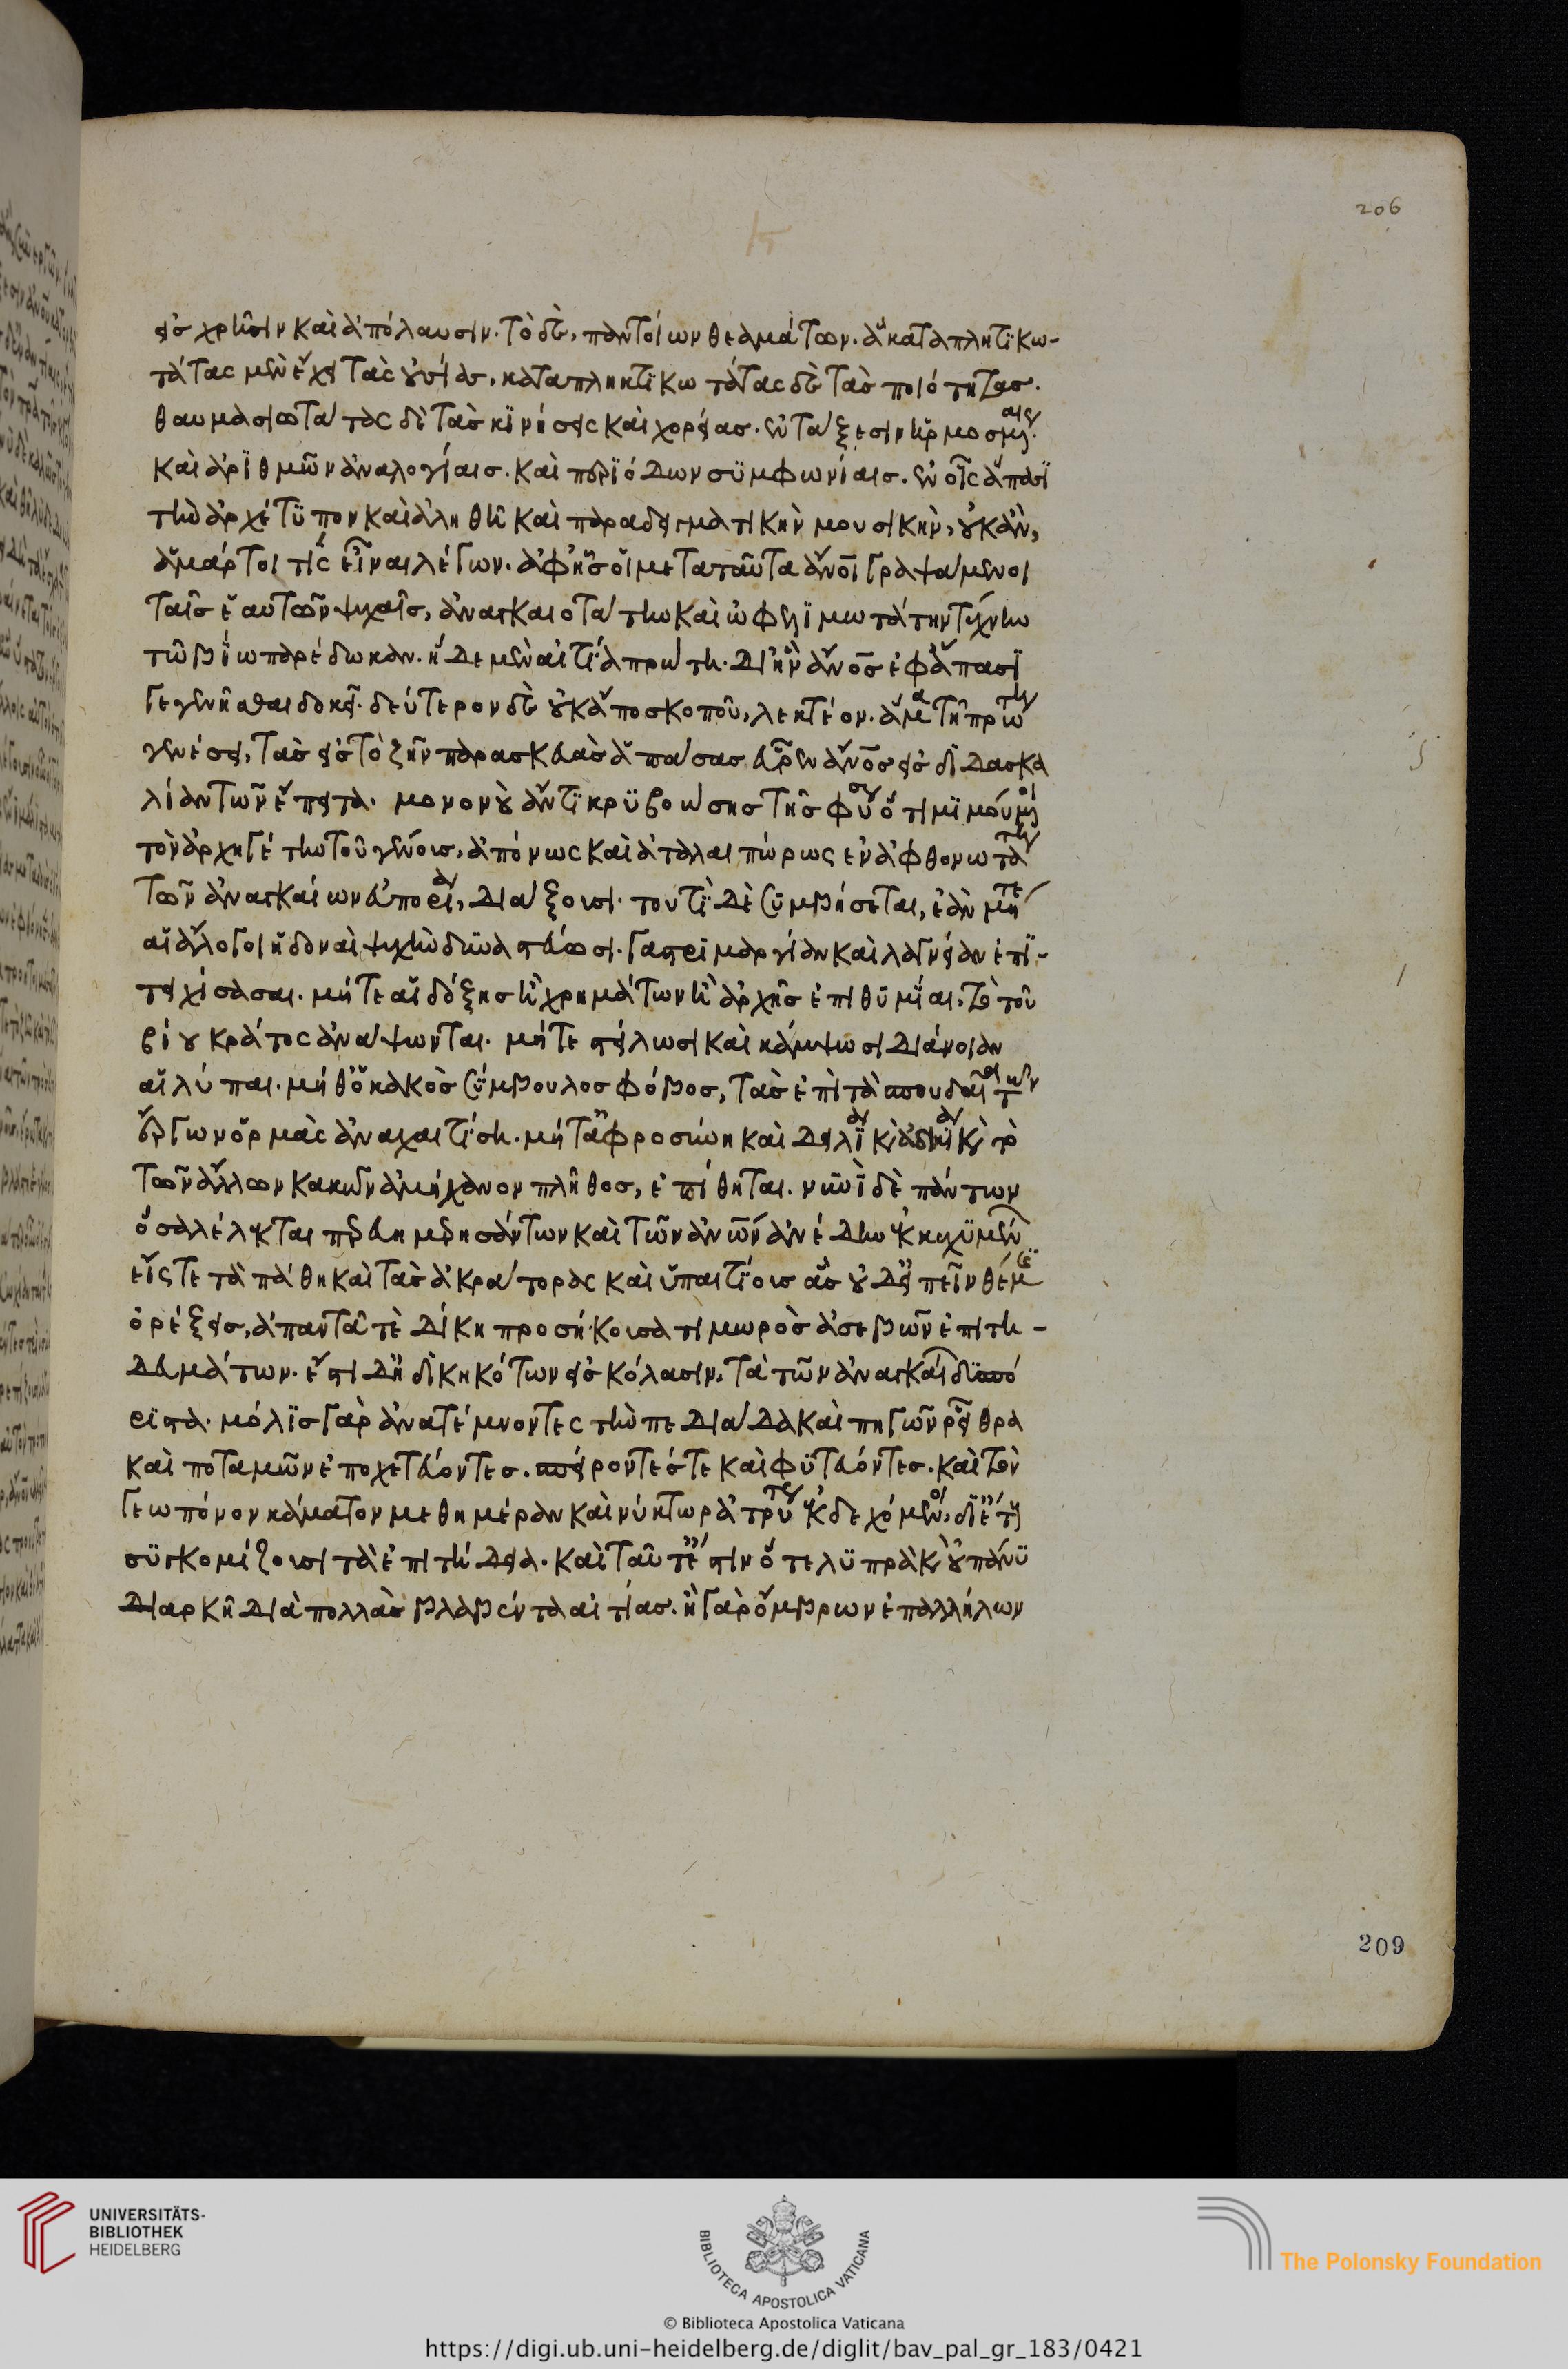 206
εἰς χρῆσιν καὶ ἀπόλαυσιν. τὸ δὲ, παντοίων θεαμάτων. ἃ καταπληκτικω-
τάτας μὲν ἔχει τὰς οὐσίας, καταπληκτικωτάτας δὲ τὰς ποιότητας.
θαυμασιωτάτας δὲ τὰς κινήσεις καὶ χορείας. ἐν τάξεσιν ἡρμοσμέναις·
καὶ ἀριθμῶν ἀναλογίαις. καὶ περιόδων συμφωνίαις. ἐν οἷς ἅπασι
τὴν ἀρχέτυπον καὶ ἀληθῆ καὶ παραδειγματικὴν μουσικὴν, οὐκ ἂν,
ἁμάρτοι τίς εἶναι λέγων. ἀφ' ἧς οἱ μετα ταῦτα ἄνοι γραψάμενοι
ταῖς ἑαυτῶν ψυχαῖς, ἀναγκαιοτάτην καὶ ὠφελιμωτάτην τέχνην
τῷ βίῳ παρέδωκαν. ἥδε μὲν αἰτία πρώτη. δι' ἣν ἄνος ἐφ' ἅπασι
γεγενῆσθαι δοκεῖ. δεύτερον δὲ οὐκ ἄπο σκοποῦ, λεκτέον. ἅμα τῇ πρώτη
γενέσει, τὰς εἰς τὸ ζῆν παρασκευὰς ἁπάσας εὗρεν ἄνος εἰς διδασκα
λίαν τῶν ἔπειτα. μονονοὺ ἄντικρυ βοώσης τῆς φύσεως ὅτι μιμούμενοι
τὸν ἀρχηγέτην τοῦ γένους, ἀπόνως καὶ ἀταλαιπώρως ἐν ἀφθονωτάτη
τῶν ἀναγκαίων εὐπορία, διάξουσι. τουτὶ δὲ συμβήσεται, ἐὰν μήτε
αἱ ἄλογοι ἡδοναὶ ψυχὴν δυναστεύσωσι. γαστριμαργίαν καὶ λαγνείαν ἐπι-
τειχίσασαι. μήτε αἱ δόξης ἢ χρημάτων ἢ ἀρχῆς ἐπιθυμίαι, τὸ τοῦ
βίου κράτος ἀνάψωνται. μήτε στείλωσι καὶ κάμψωσι διάνοιαν
αἱ λύπαι. μήθ' ὁ κακὸς σύμβουλος φόβος, τὰς ἐπὶ τὰ σπουδαῖα τῶν
ἔργων ὁρμὰς ἀναχαιτίση. μήτ' ἀφροσύνη καὶ δειλία καὶ ἀδικία καὶ τὸ
τῶν ἄλλων κακῶν ἀμήχανον πλῆθος, ἐπίθηται. νυνὶ δὲ πάντων
ὅσα λέλεκται παρευημερησάντων καὶ τῶν ἀνῶν ἀνέδην ἐκκεχυμένων
εἴς τε τὰ πάθη καὶ τὰς ἀκράτορας καὶ ὑπαιτίους ἃς οὐδ' εἰπεῖν θέμις
ὀρέξεις, ἀπαντᾶ τὲ δίκη προσήκουσα τιμωρὸς ἀσεβῶν ἐπιτη-
δευμάτων. ἔστι δ' ἡ δίκη κότων εἰς κόλασιν, τὰ τῶν ἀναγκαίων δυσπό
ριστα. μόλις γὰρ ἀνατέμνοντες τὴν πεδιάδα καὶ πηγῶν ῥεῖθρα
καὶ ποταμῶν ἐποχετεύοντες. σπείροντές τε καὶ φυτεύοντες. καὶ τὸν
γεωπόνον κάματον μεθημέραν καὶ νύκτωρ ἀτρύτως ἐκδεχόμενοι, δι' ἔτους
συγκομίζουσι τὰ ἐπιτήδεια. καὶ ταῦτ' ἔστιν ὅτε λυπρὰ καὶ οὐ πάνυ
διαρκῆ διὰ πολλὰς βλαβέντα αἰτίας. ἢ γὰρ ὄμβρων ἐπαλλήλων
209
UNIVERSITÄTS-
BIBLIOTHEK
HEIDELBERG
BIBLIOTECA APOSTOLICA VATICANA
The Polonsky Foundation
© Biblioteca Apostolica Vaticana
https://digi.ub.uni-heidelberg.de/diglit/bav_pal_gr_183/0421